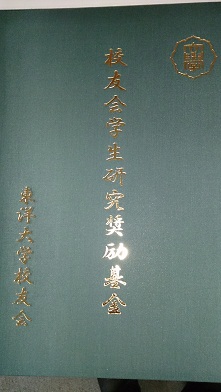 校友会学生研究奨励基金
東洋大学校友会